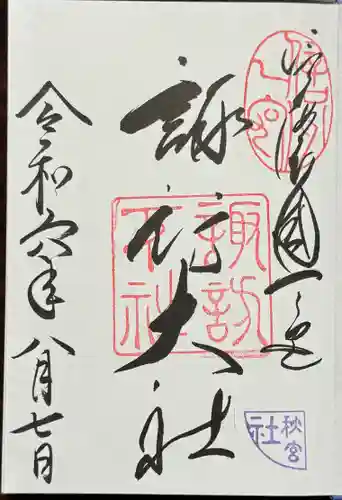 信濃國一之宮
諏訪大社
令和六年八月七日
諏訪
大社
秋宮
社